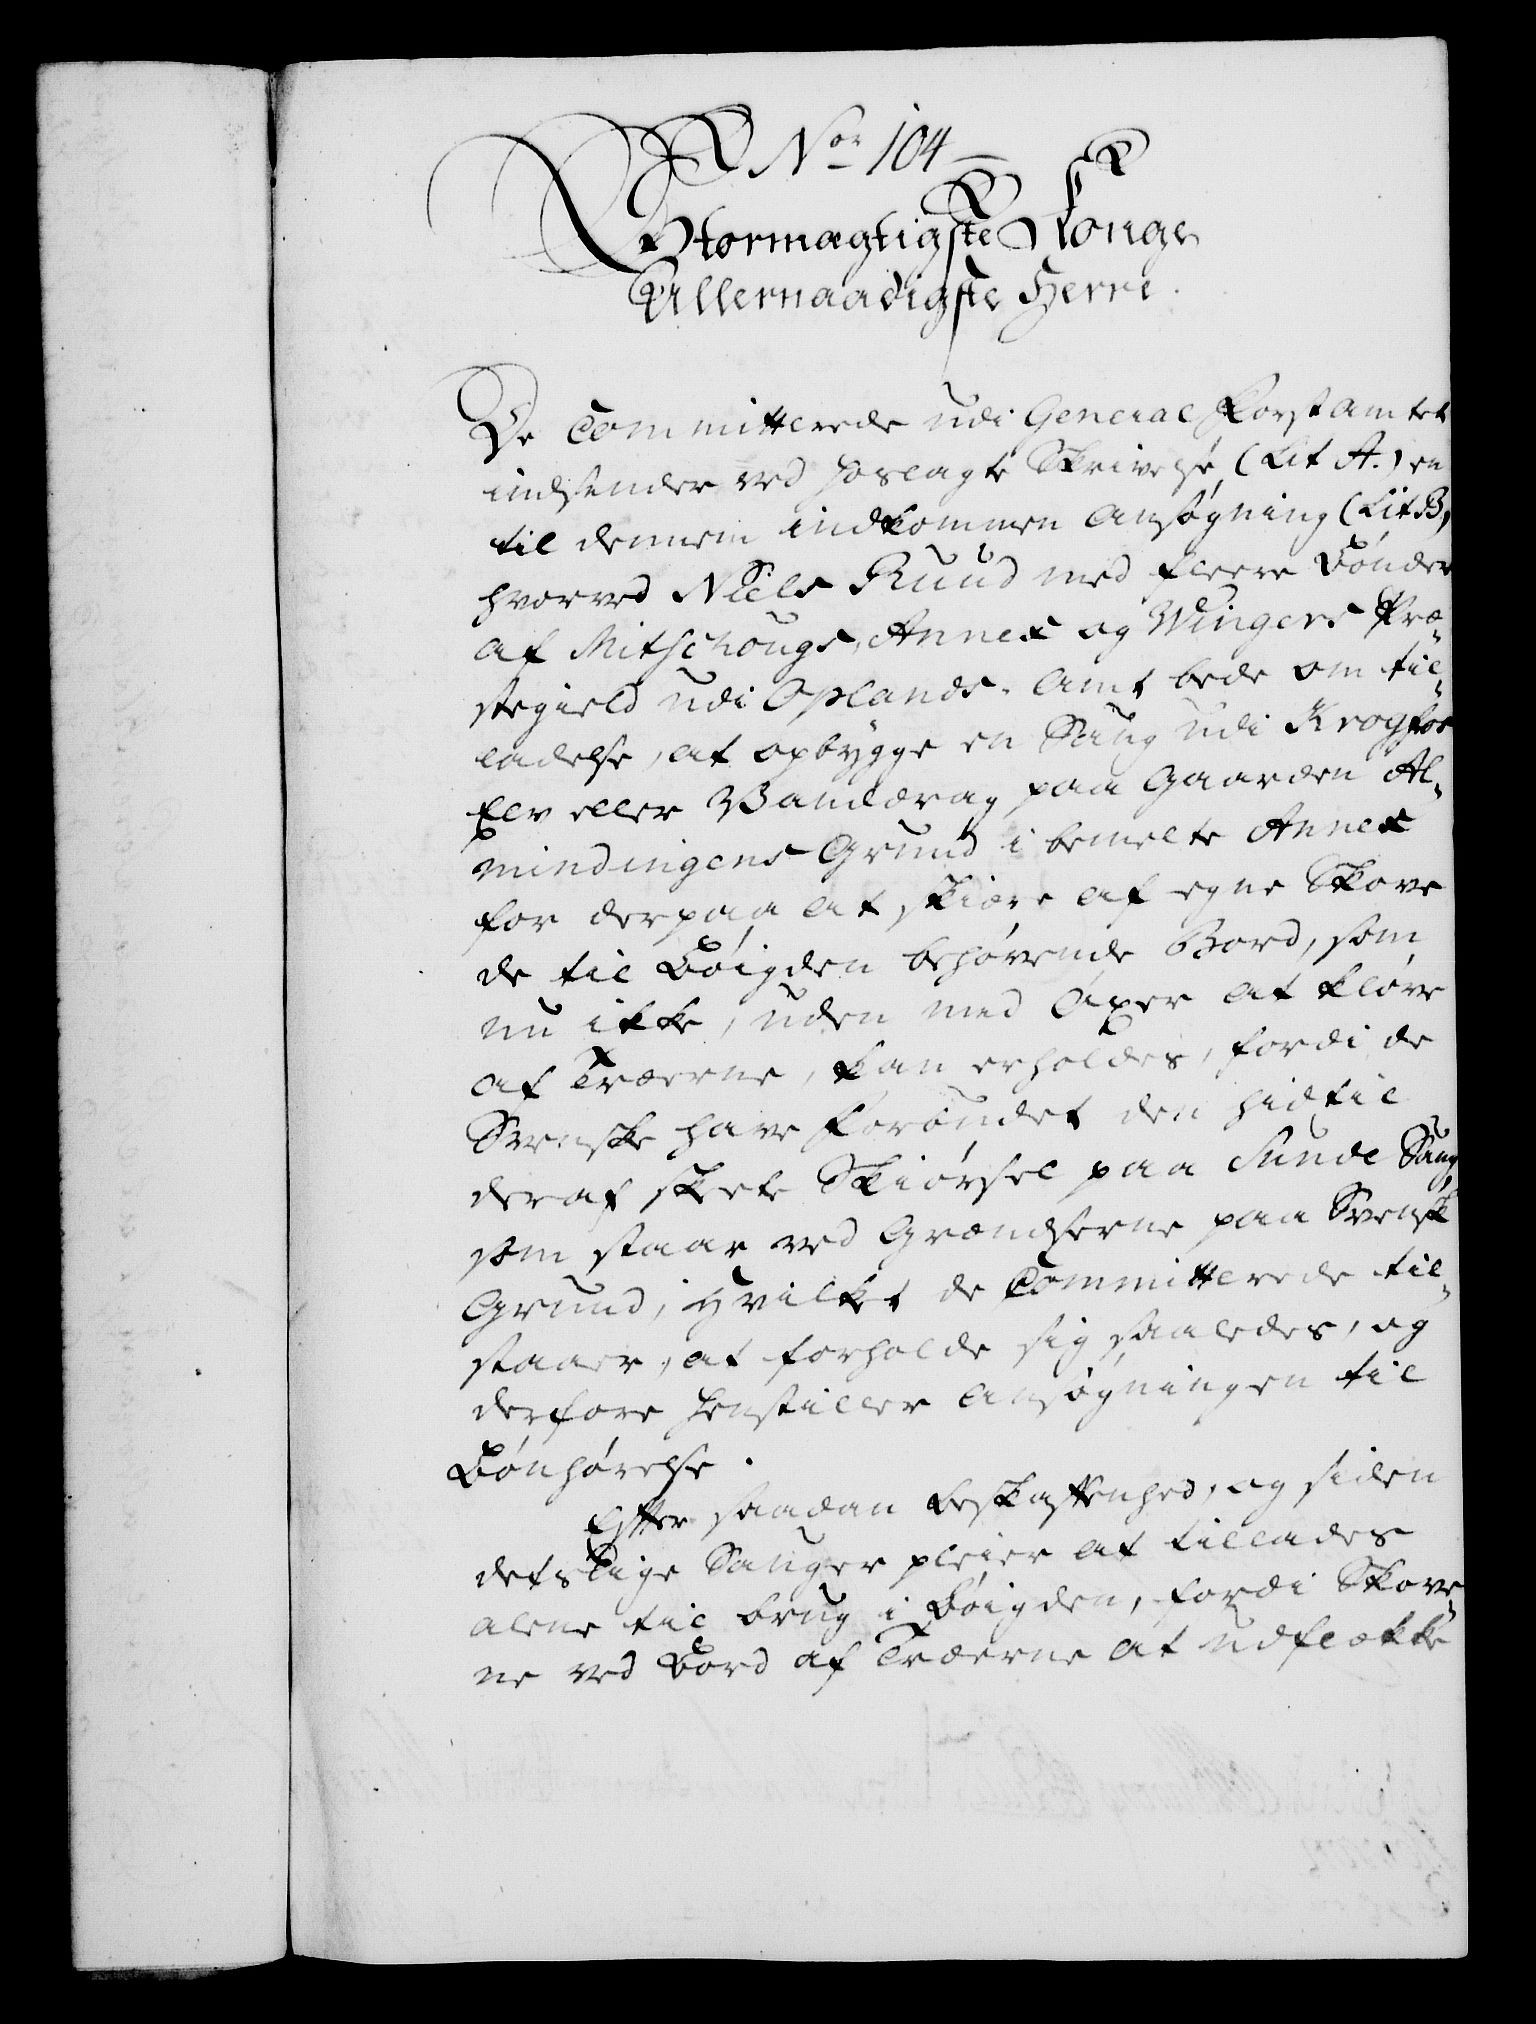 Nor 104
Stormægtigste Konge
Allernaadigste Herre.
De Committerede udi General Forstamtet
indsender ved hoslagte Skrivelse (Lit A.) en
til dennem indkommen Ansøgning (Lit B,)
hvorved Niels Ruud med fleere Bønder
af Mitschougs Annex og Wingers Præ-
stegield udi Oplands Amt bede om til-
ladelse, at opbygge en Saug udi Krogfos
Elv eller Vanddrag paa Gaarden Al-
mindingens Grund i bemelte Annex
for derpaa at skiære af egne Skove
de til Bøigden behøvende Bord, som
nu ikke, uden med Øxer at kløve
af Træerne, kan erholdes, fordi de
Svenske have forbudet den hidtil
deraf skete Skiørsel paa Sunde Saug,
som staar ved Grændserne paa Svensk
Grund, hvilket de Committerede til-
staaer, at forholde sig saaledes, og
derfore henstiller Ansøgningen til
Bønhørelse.
Efter saadan beskaffenhed, og siden
detslige Sauger pleier at tillades
alene til brug i Bøigden, fordi Skove-
ne ved Bord af Træerne at udflække